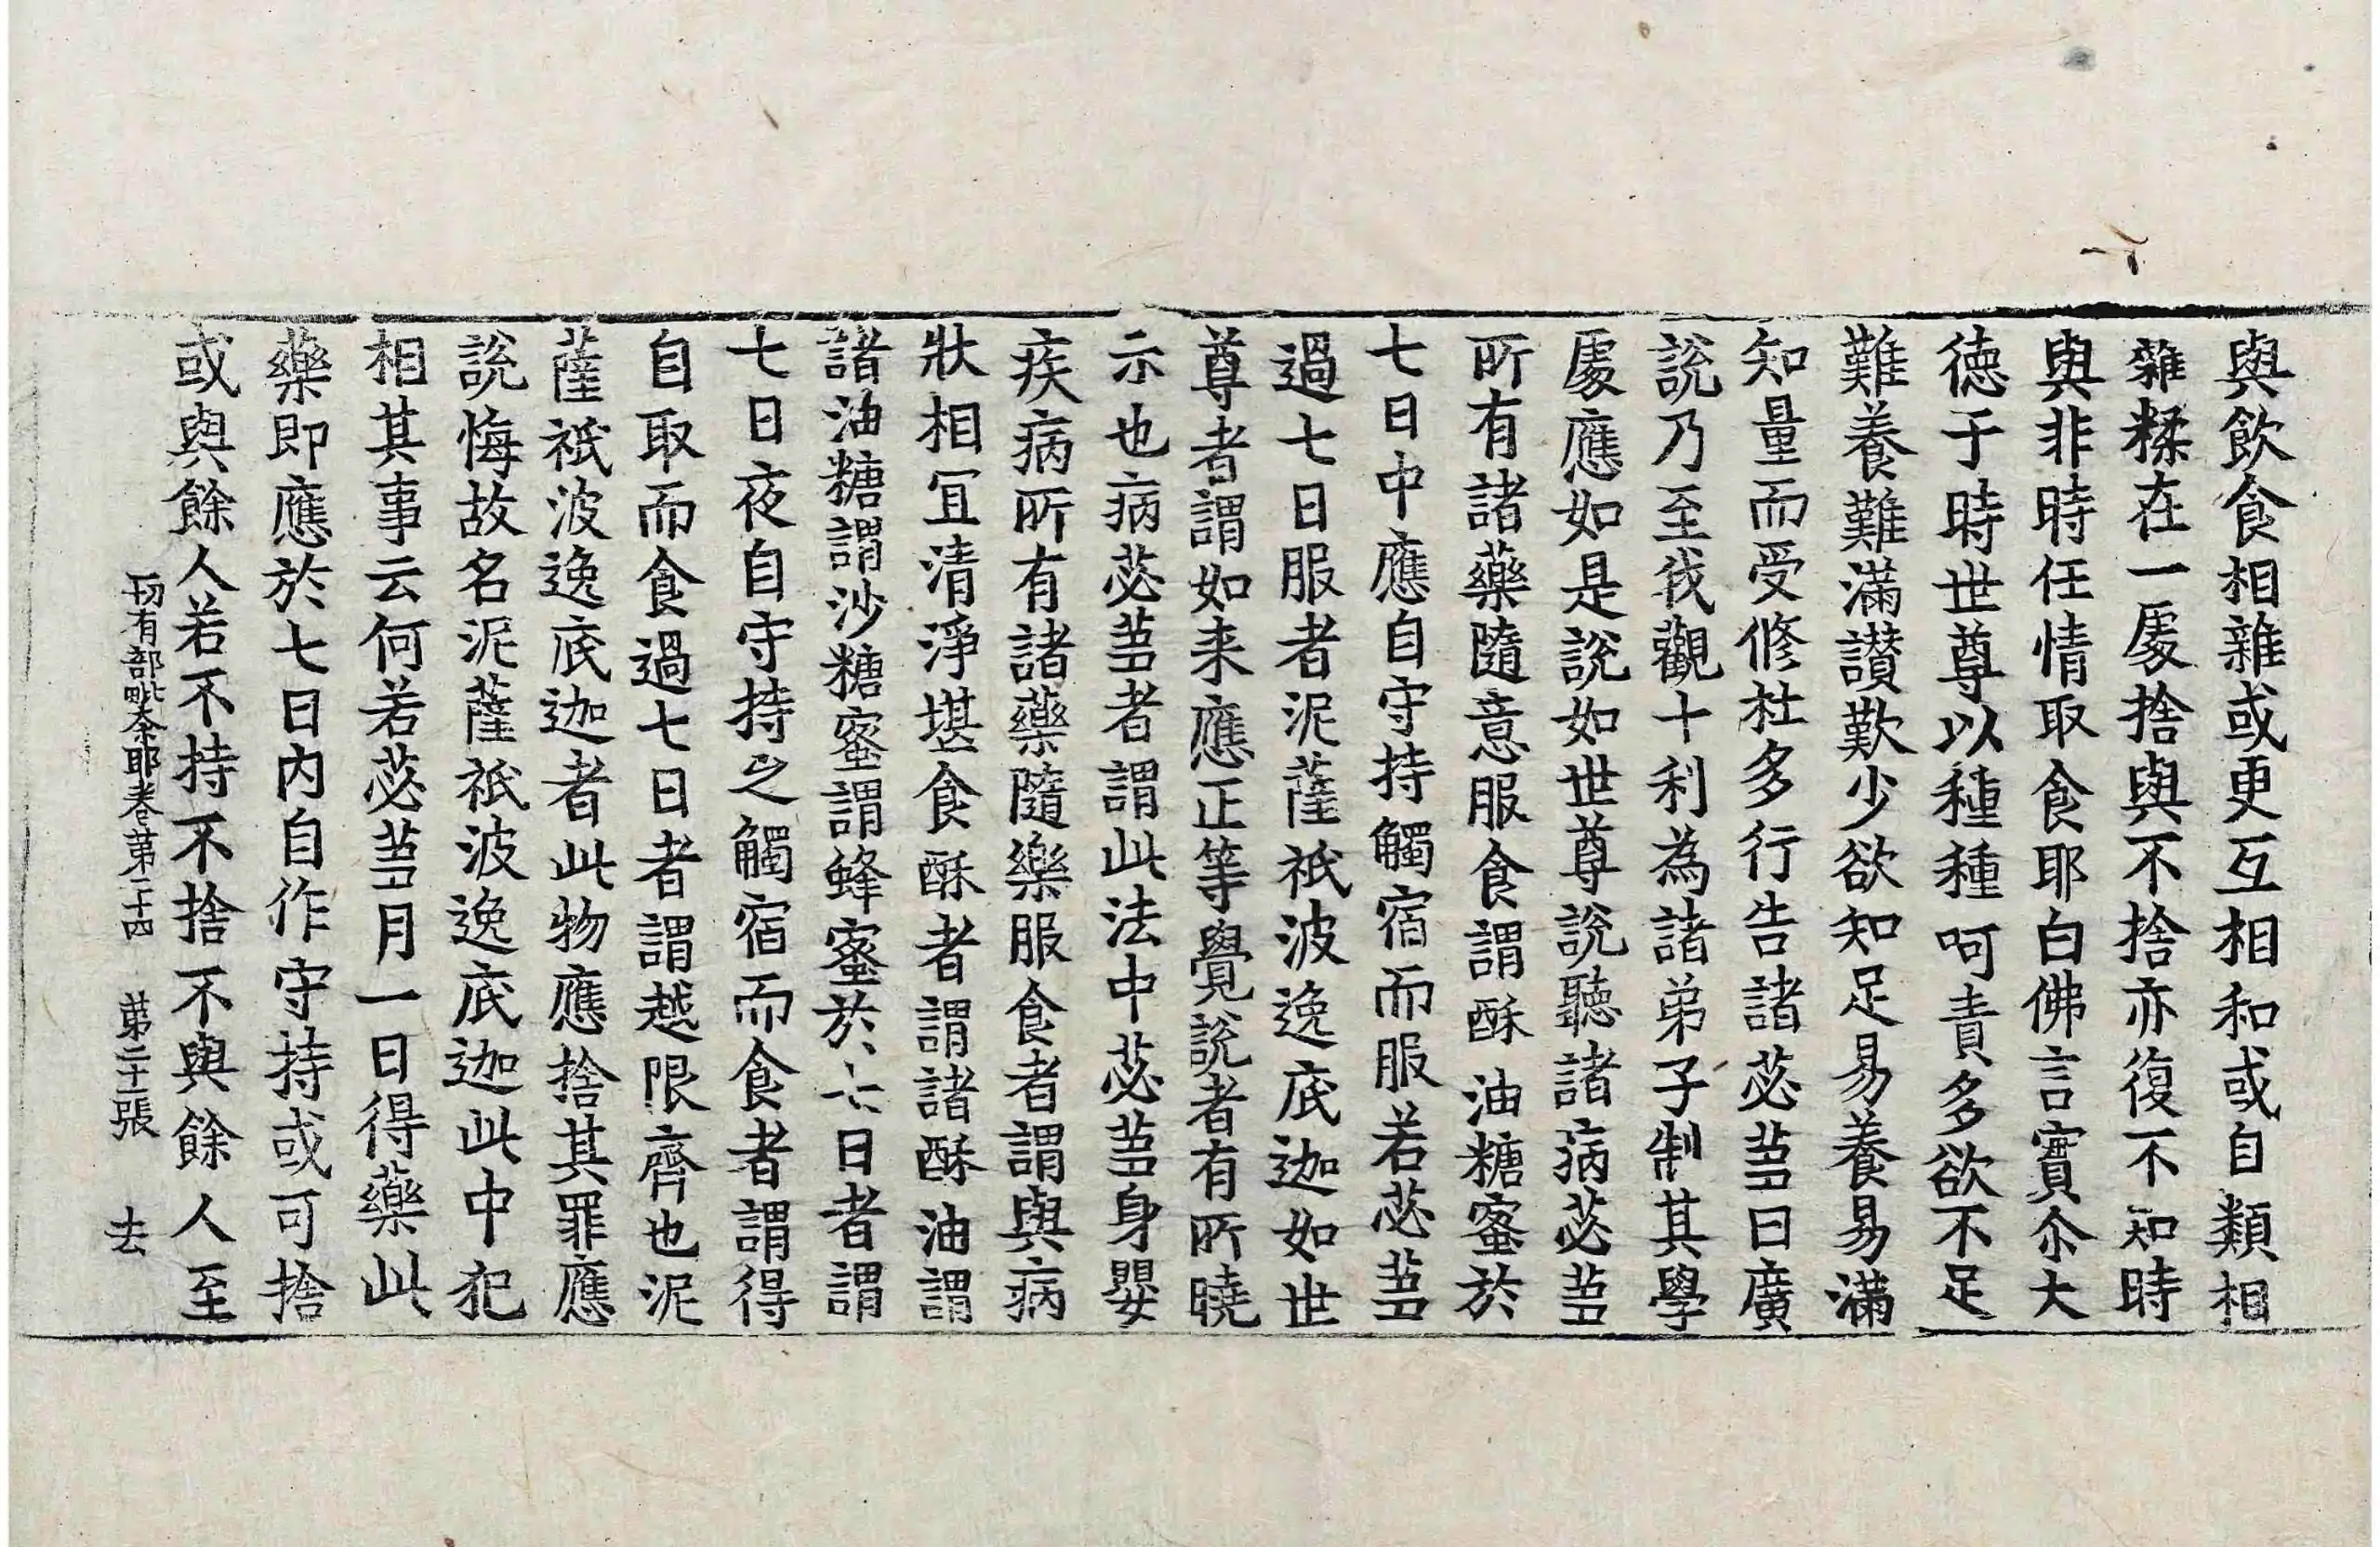 與飲食相雜或更互相和或自類相
雜糅在一處捨與不捨亦復不知時
與非時任情取食耶白佛言實尒大
德于時世尊以種種呵責多欲不足
難養難滿讃歎少欲知足易養易滿
知量而受修杜多行告諸苾芻曰廣
說乃至我觀十利為諸弟子制其學
處應如是說如世尊說聽諸病苾芻
所有諸藥隨意服食謂酥油糖蜜於
七日中應自守持觸宿而服若苾芻
過七日服者泥薩祇波逸底迦如世
尊者謂如来應正等覺說者有所曉
示也病苾芻者謂此法中苾芻身嬰
疾病所有諸藥隨樂服食者謂與病
狀相冝清淨堪食酥者謂諸酥油謂
諸油糖謂沙糖蜜謂蜂蜜於七日者謂
七日夜自守持之觸宿而食者謂得
自取而食過七日者謂越限齊也泥
薩祇波逸底迦者此物應捨其罪應
說悔故名泥薩祇波逸底迦此中犯
相其事云何若苾芻月一日得藥此
藥即應於七日内自作守持或可捨
或與餘人若不持不捨不與餘人至
一切有部毗奈耶卷第二十四 第二十二張 去